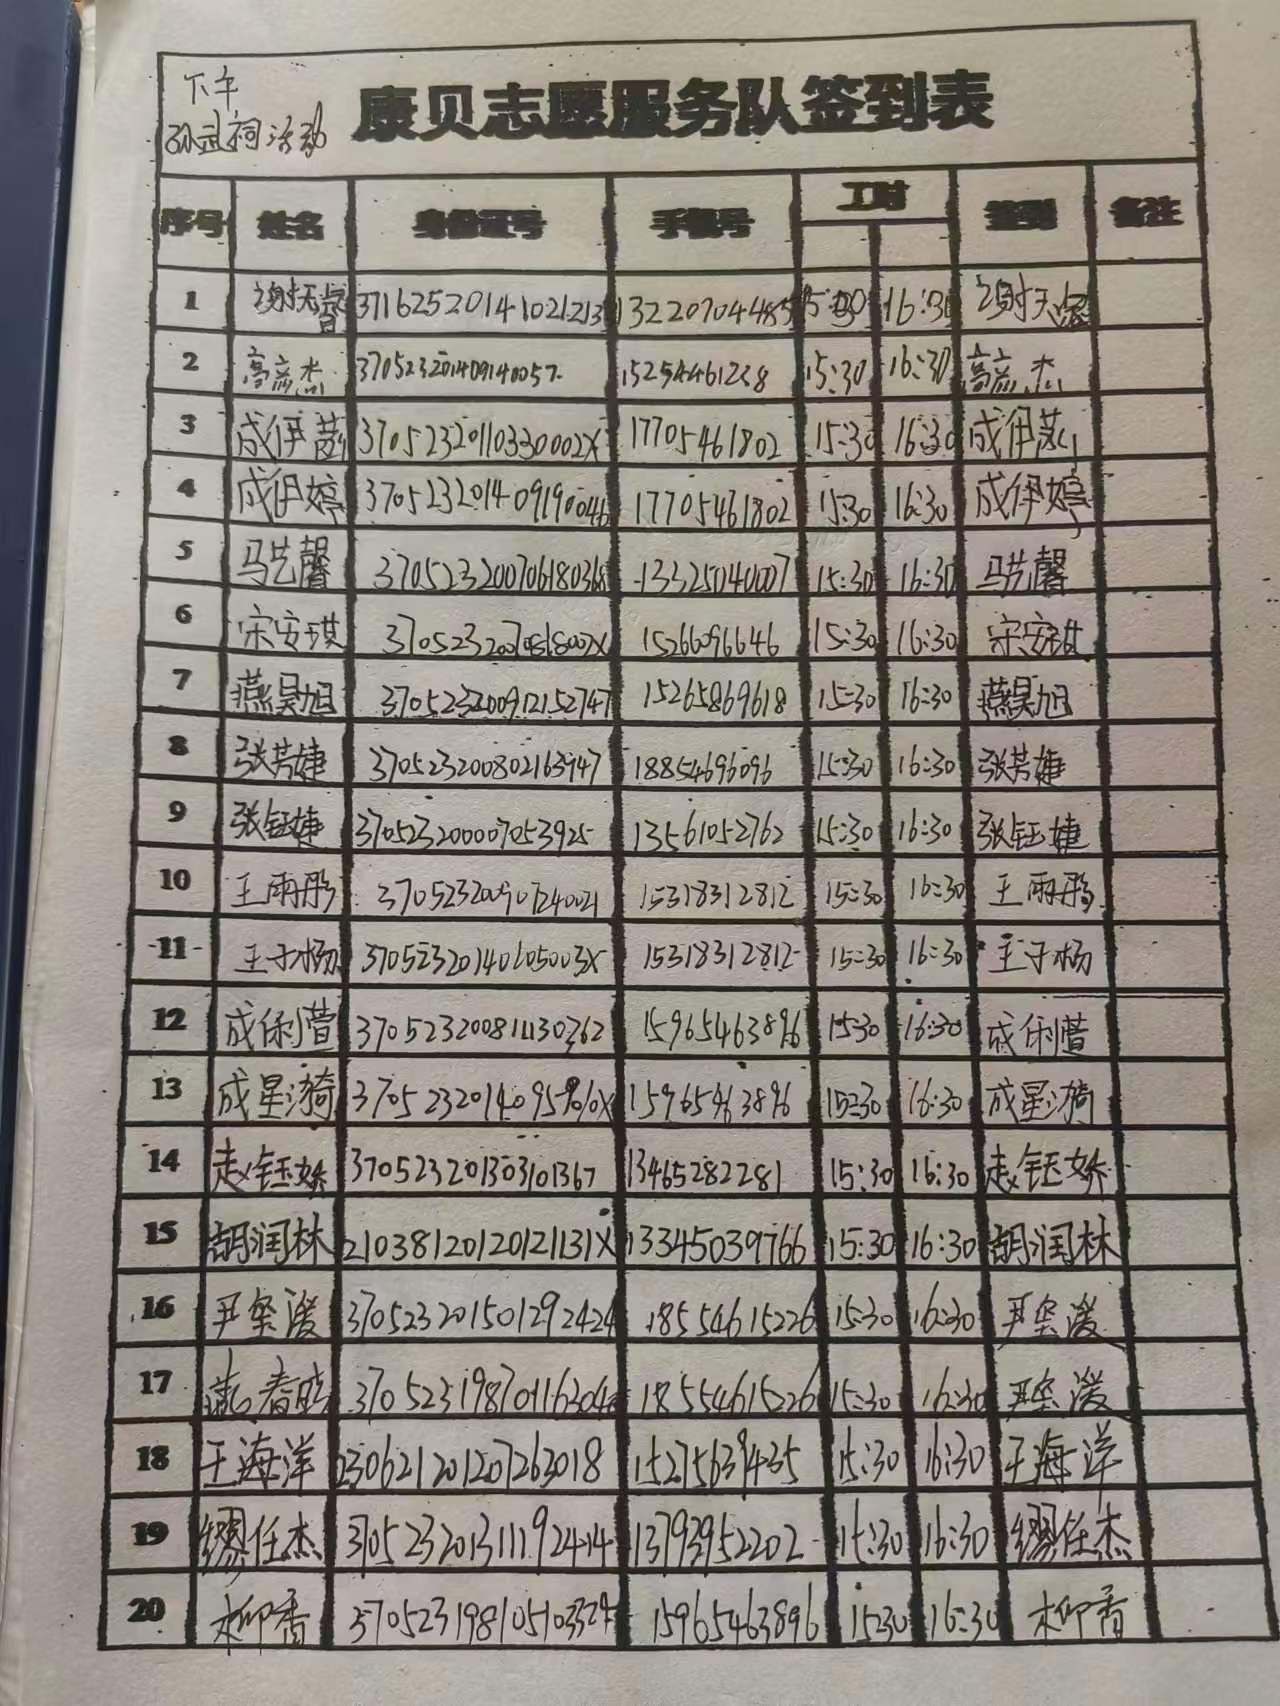 下午
孙武祠活动
康贝志愿服务队签到表
序号 姓名 身份证号 手机号 工时 签到 备注
1 13220704485 15:30 16:30
2 370523201409140057 15254461238 15:30 16:30
3 成伊 37052320110330002X 17705461802 15:30 16:30 成伊
4 成伊婷 370523201409190046 17705461802 15:30 16:30 成伊婷
5 马艺馨 370523200706180368 13325040007 15:30 16:30 马艺馨
6 宋安琪 15266096646 15:30 16:30 宋安琪
7 燕昊旭 370523200912152747 15265869618 15:30 16:30 燕昊旭
8 张芳婕 370523200802163947 18854696096 15:30 16:30 张芳婕
9 张钰婕 370523200007053925 13561052762 15:30 16:30 张钰婕
10 王雨彤 370523200907240021 15318312812 15:30 16:30 王雨彤
11 王子杨 37052320140605003X 15318312812 15:30 16:30 王子杨
12 成俐萱 370523200811130362 15965463896 15:30 16:30 成俐萱
13 成星漪 15965463896 15:30 16:30 成星漪
14 赵钰娇 370523201303101367 13465282281 15:30 16:30 赵钰娇
15 胡润林 21038120120121131X 13345039766 15:30 16:30 胡润林
16 370523201501292424 18554615226 15:30 16:30
17 18554615226 15:30 16:30
18 王海洋 230621201207263018 15275639435 15:30 16:30 王海洋
19 缪任杰 370523201311192414 13793952202 15:30 16:30 缪任杰
20 柳香 370523198105103324 15965463896 15:30 16:30 柳香